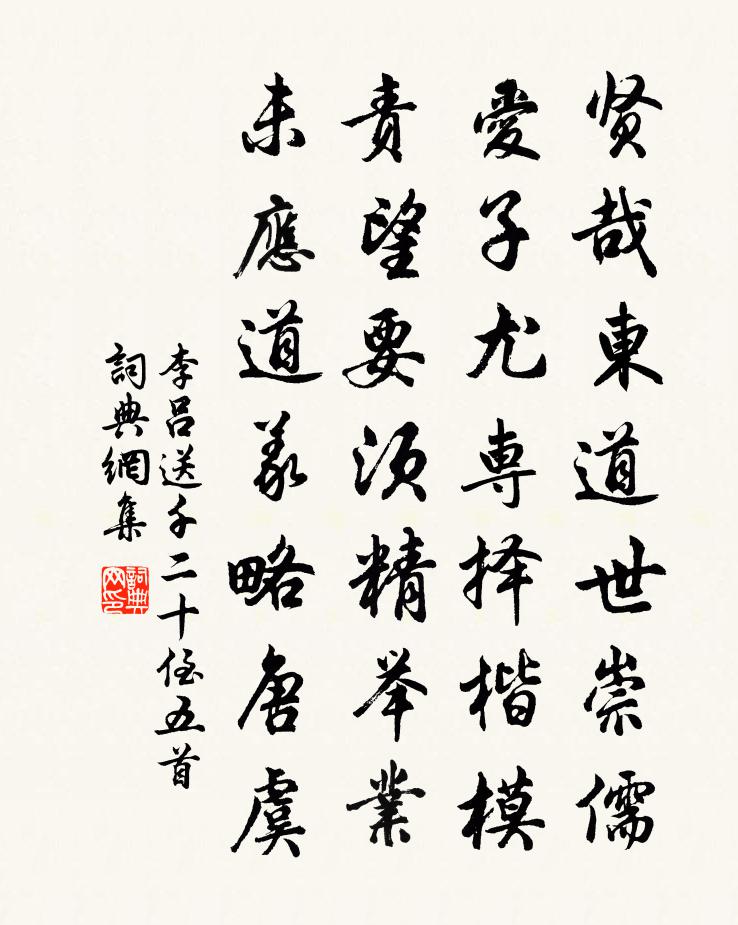 贤哉東道世崇儒
愛子尤専择楷模
責望要須精举業
未應道義略唐虞
李吕送千二十侄五首
詞典網集
詞典
网印